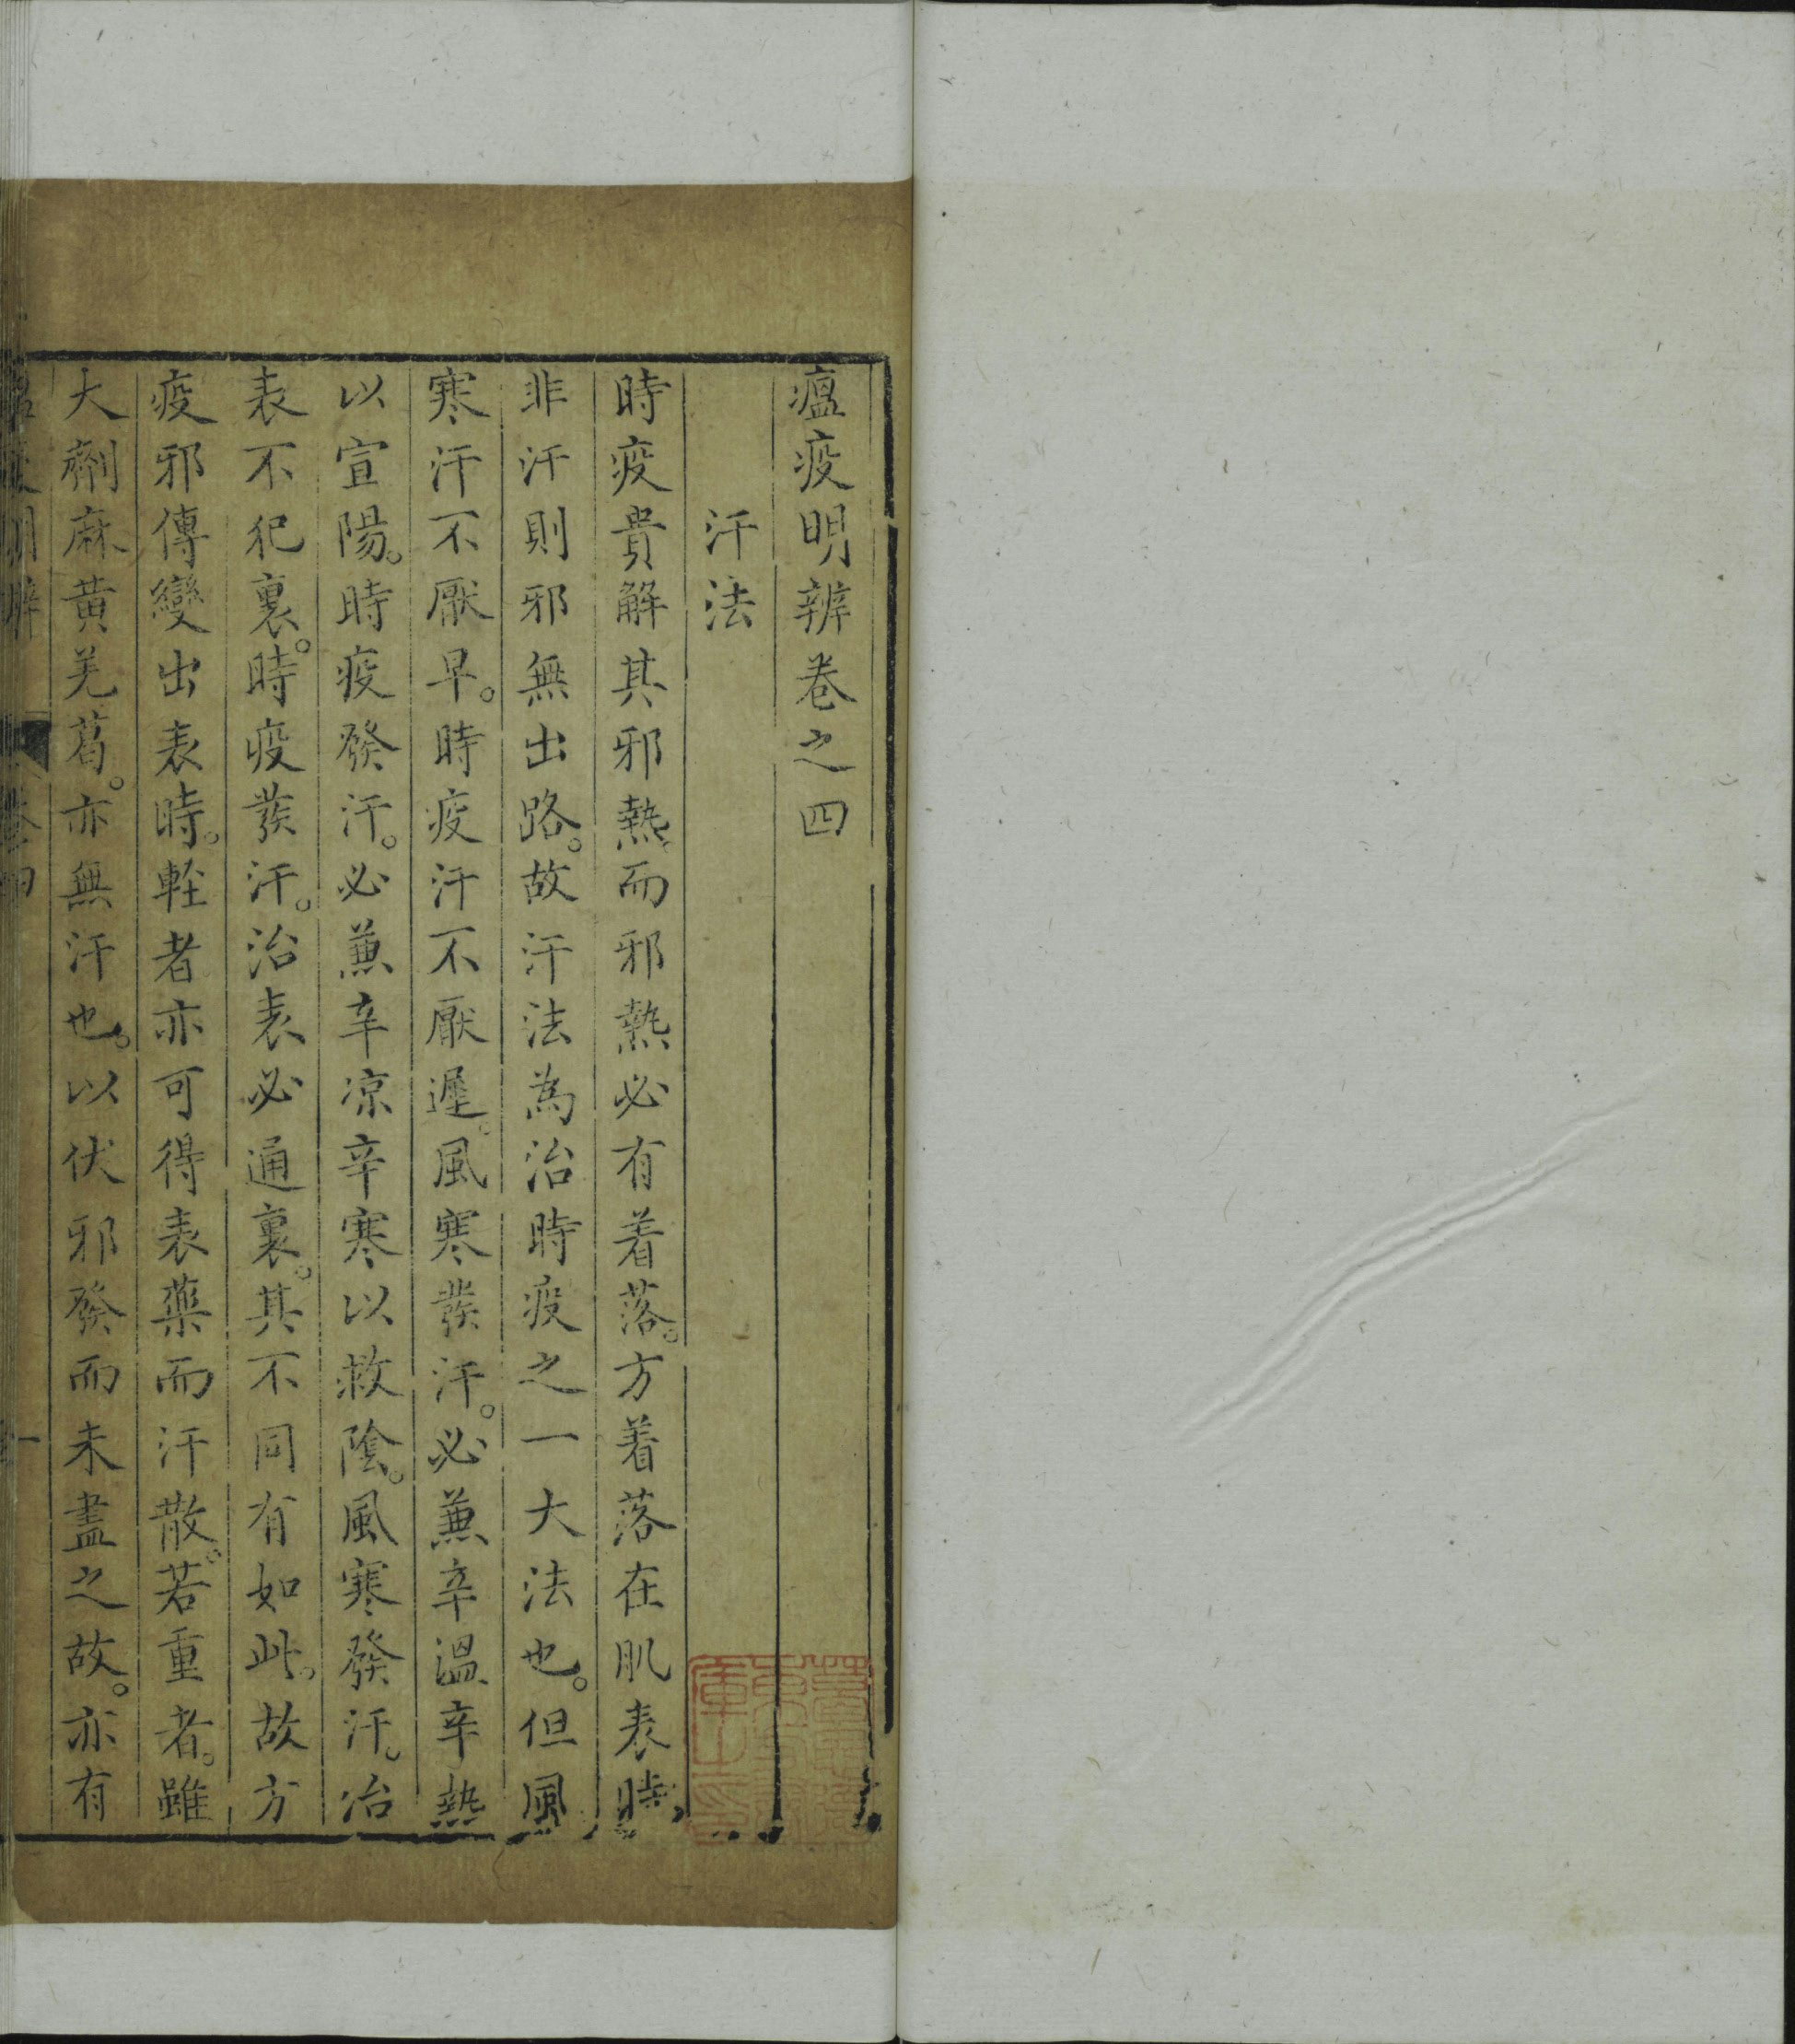 瘟疫明辨卷之四
汗法
時疫貴解其邪熱而邪熱必有着落。方着落在肌表時
非汗則邪無出路。故汗法為治時疫之一大法也。但風
寒汗不厭早。時疫汗不厭遲。風寒發汗。必兼辛溫辛熱
以宣陽。時疫發汗。必兼辛凉辛寒以救陰。風寒發汗。治
表不犯裏。時疫發汗。治表必通裏。其不同有如此。故方
疫邪傳變出表時。輕者亦可得表藥而汗散。若重者。雖
大劑麻黄羌葛。亦無汗也。以伏邪發而未盡之故。亦有
卷四
一